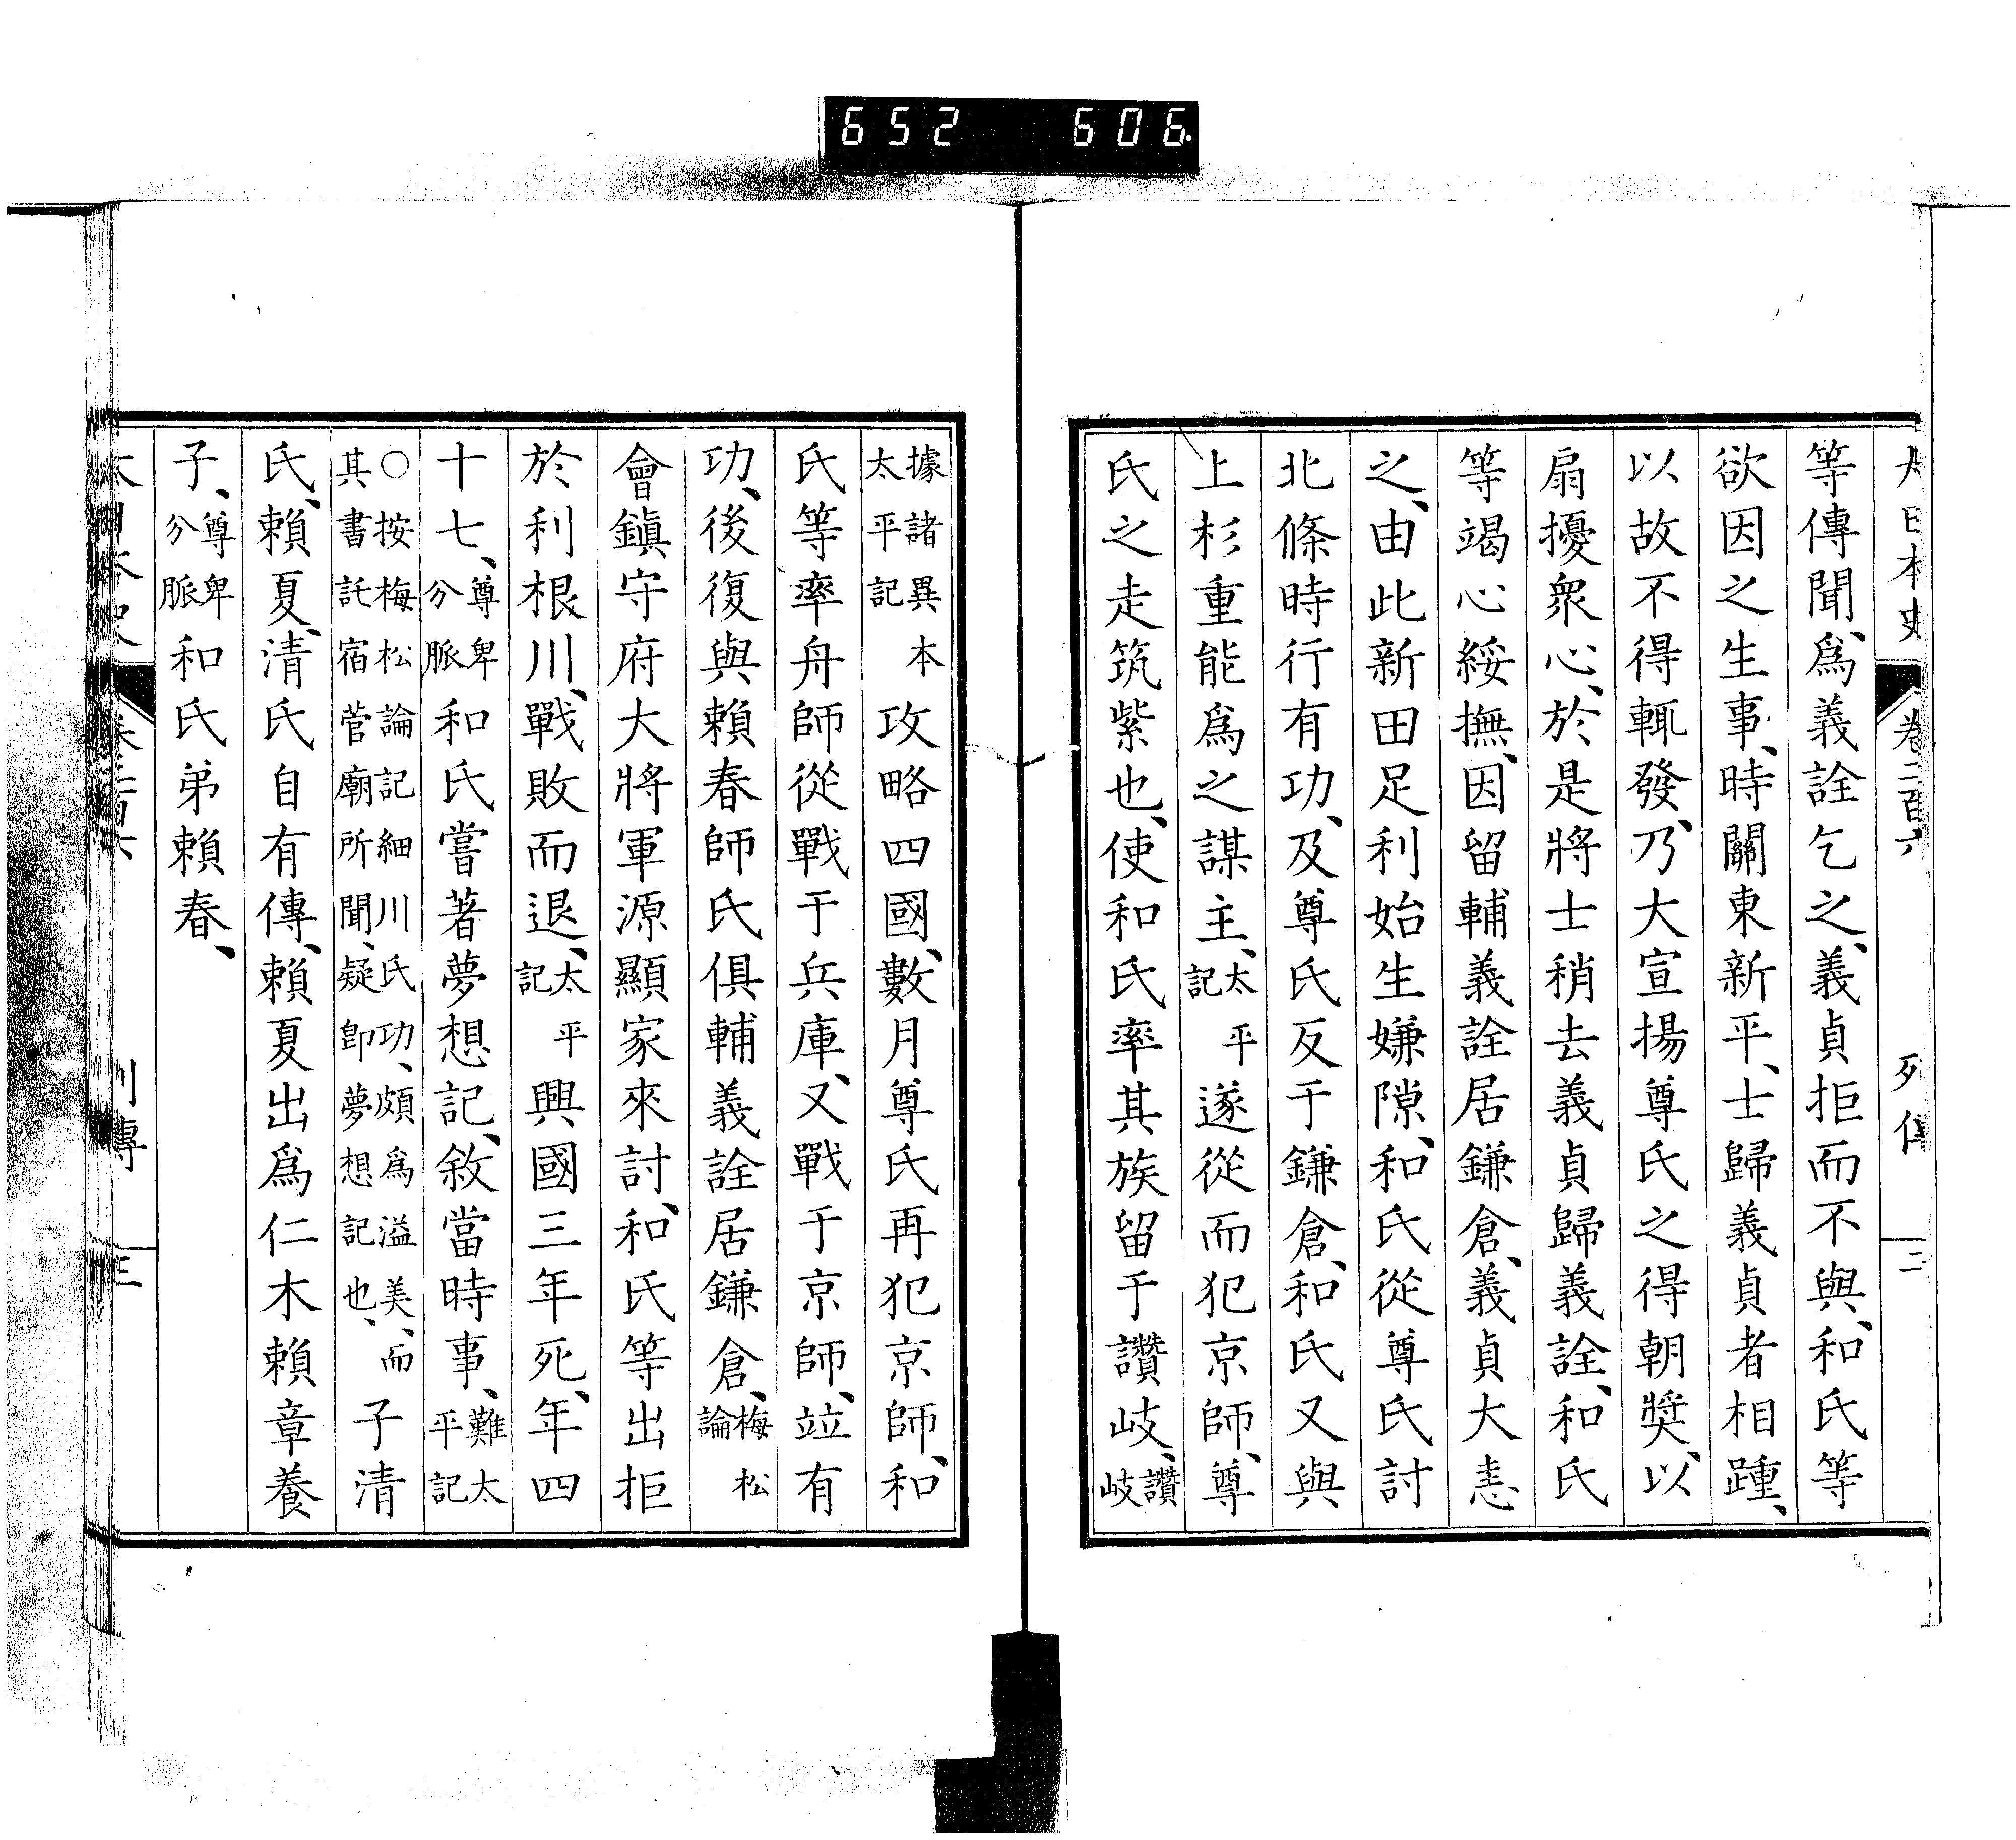 652 606
大日本史 卷二百六 列傳 二
等傳聞、爲義詮乞之、義貞拒而不與、和氏等
欲因之生事、時關東新平、士歸義貞者相踵、
以故不得輒發、乃大宣揚尊氏之得朝奬、以
扇擾衆心、於是將士稍去義貞歸義詮、和氏
等竭心綏撫、因留輔義詮居鎌倉、義貞大恚
之、由此新田足利始生嫌隙、和氏從尊氏討
北條時行有功、及尊氏反于鎌倉、和氏又與
上杉重能爲之謀主、太平記遂從而犯京師、尊
氏之走筑紫也、使和氏率其族留于讚岐、讚岐
據諸異本太平記攻略四國、數月尊氏再犯京師、和
氏等率舟師從戰于兵庫、又戰于京師、竝有
功、後復與賴春師氏俱輔義詮居鎌倉、梅松論
會鎭守府大將軍源顯家來討、和氏等出拒
於利根川、戰敗而退、太平記興國三年死、年四
十七、尊卑分脈和氏嘗著夢想記、敘當時事、難太平記
○按梅松論記細川氏功、頗爲溢美、而其書託宿菅廟所聞、疑卽夢想記也、子淸
氏、賴夏、淸氏自有傳、賴夏出爲仁木賴章養
子、尊卑分脈和氏弟賴春、
列傳 三